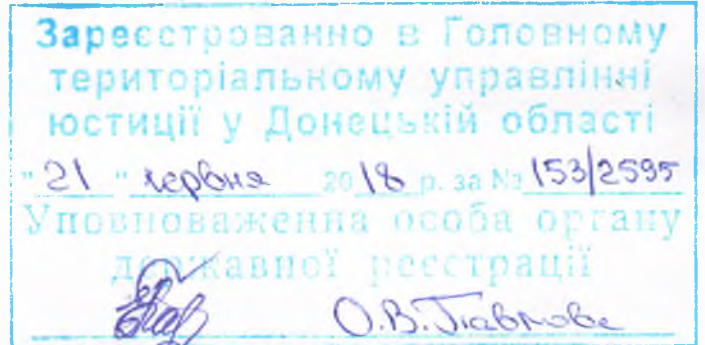 Зареєстрованно в Головному
територіальному управлінні
юстиції у Донецькій області
"21" червня 2018 р. за № 153/2595
Уповноваженна особа органу
державної реєстрації
О.В. Павлова